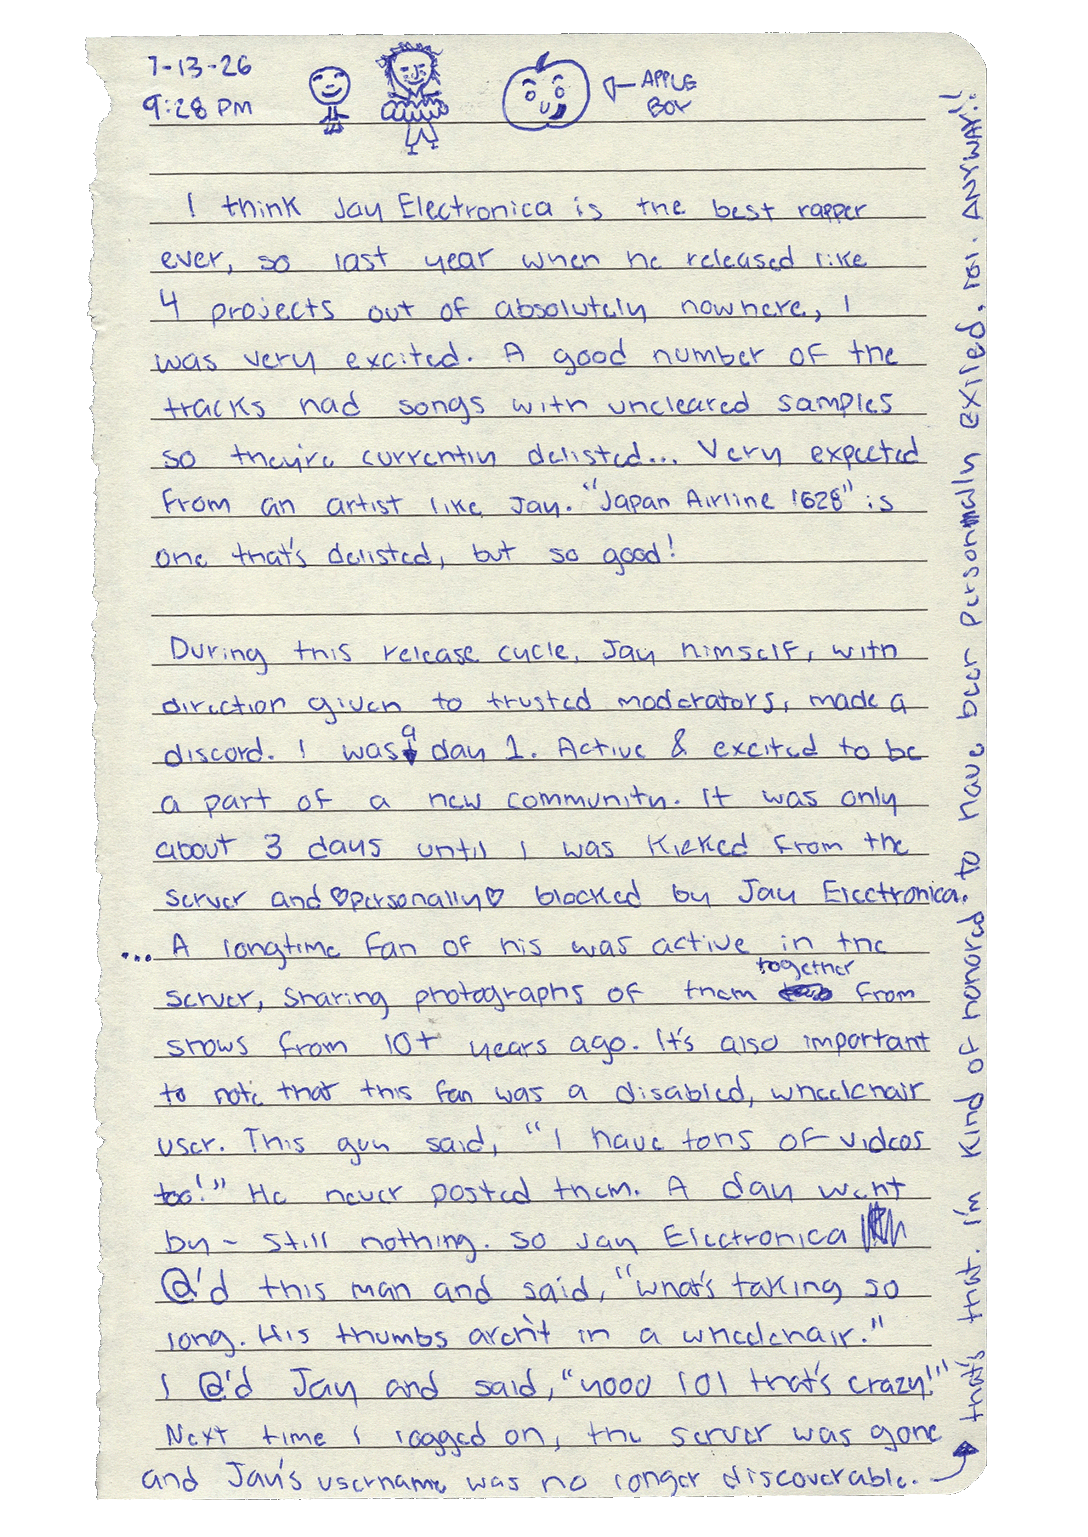 7-13-26
9:28 PM
APPLE
BOY
I think Jay Electronica is the best rapper
ever, so last year when he released like
4 projects out of absolutely nowhere, I
was very excited. A good number of the
tracks had songs with uncleared samples
so they're currently delisted... Very expected
from an artist like Jay. "Japan Airline 1628" is
one that's delisted, but so good!
During this release cycle, Jay himself, with
direction given to trusted moderators, made a
discord. I was a day 1. Active & excited to be
a part of a new community. It was only
about 3 days until I was kicked from the
server and ♡personally♡ blocked by Jay Electronica.
... A longtime fan of his was active in the
server, sharing photographs of them together from
shows from 10+ years ago. It's also important
to note that this fan was a disabled, wheelchair
user. This guy said, "I have tons of videos
too!" He never posted them. A day went
by - still nothing. So Jay Electronica
@'d this man and said, "what's taking so
long. His thumbs aren't in a wheelchair."
I @'d Jay and said, "yooo lol that's crazy!"
Next time I logged on, the server was gone
and Jay's username was no longer discoverable.
that's that. I'm kind of honored to have been personally exiled, lol. ANYWAY!!